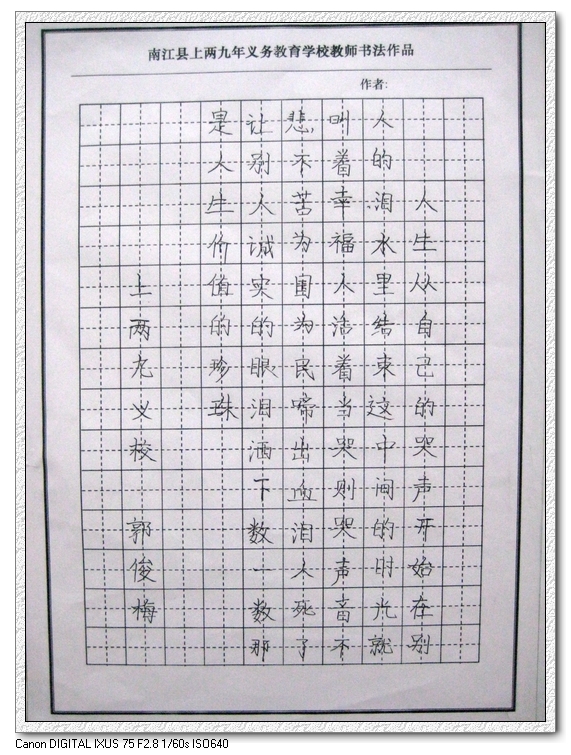 南江县上两九年义务教育学校教师书法作品
作者:
人生从自己的哭声开始在别
人的泪水里结束这中间的时光就
叫着幸福人活着当哭则哭声音不
悲不苦为国为民啼出血泪人死了
让别人诚实的眼泪洒下数一数那
是人生价值的珍珠
上两九义校 郭俊梅
Canon DIGITAL IXUS 75 F2.8 1/60s ISO640